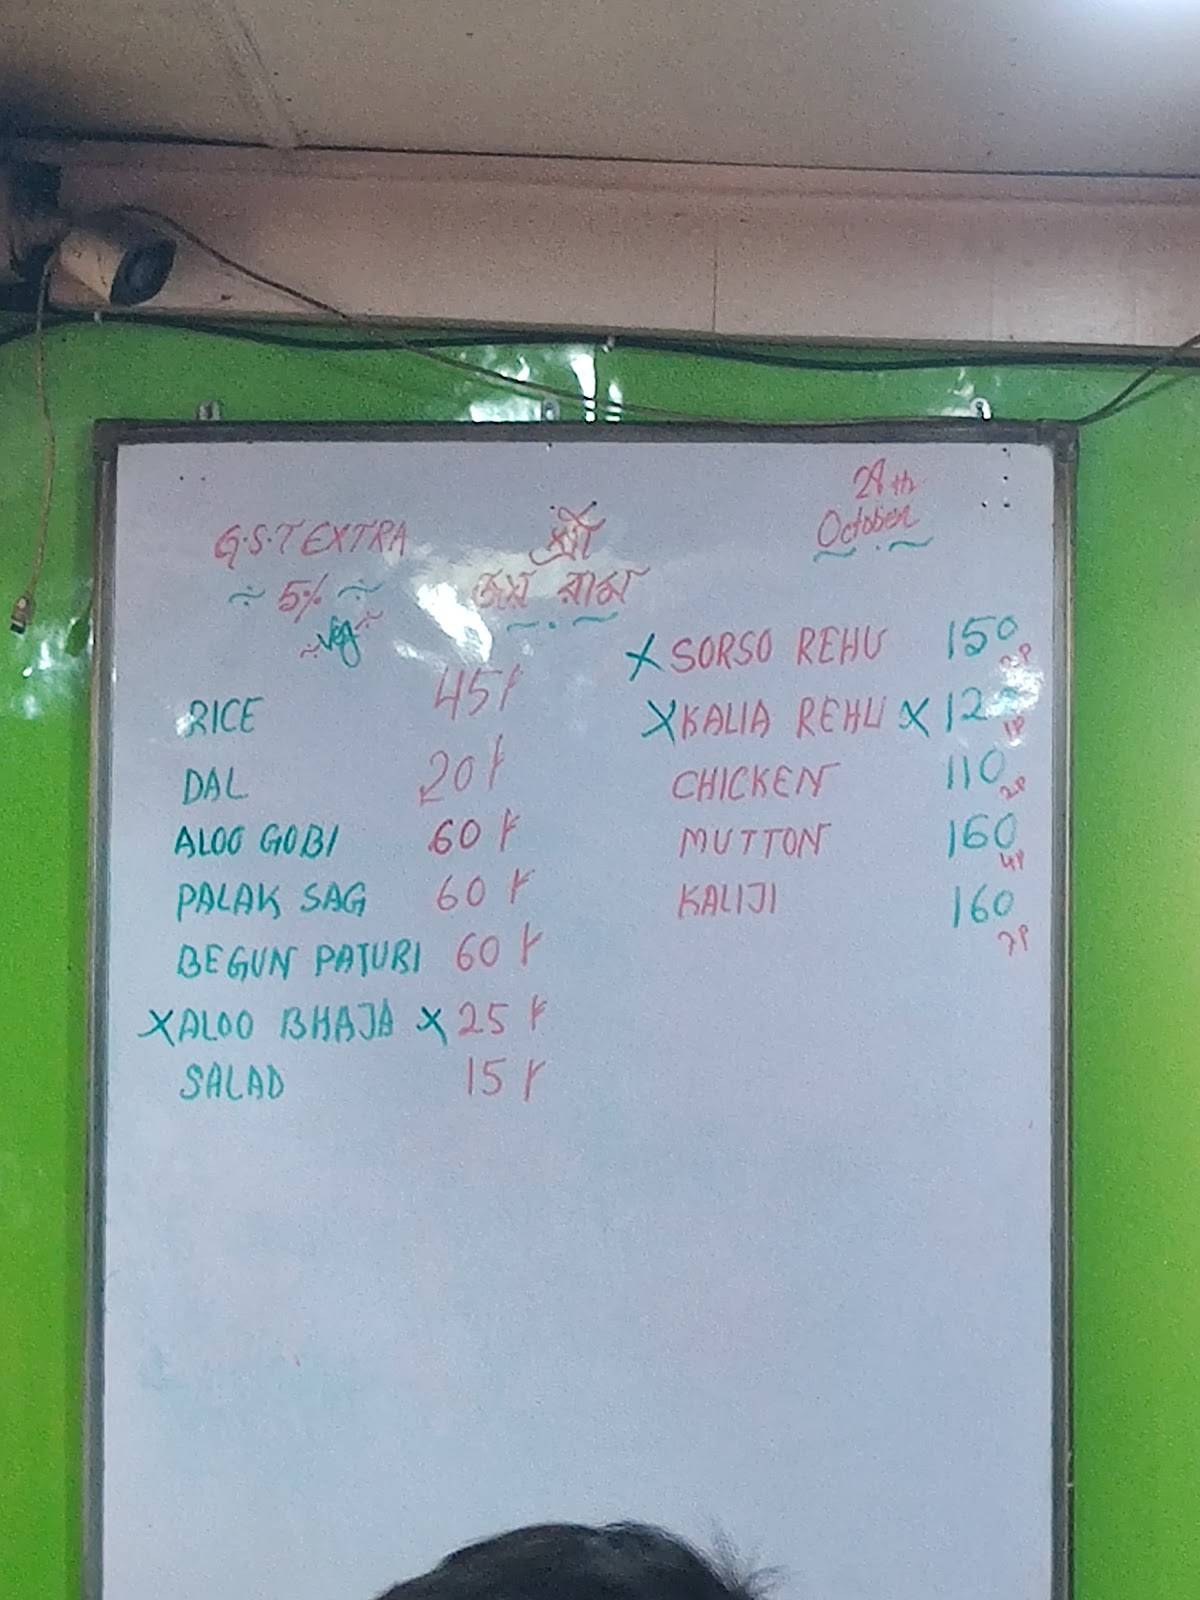 28th
October
G.S.T EXTRA
5%
শ্রী
জয় রাম
Veg
RICE 45/-
DAL 20/-
ALOO GOBI 60/-
PALAK SAG 60/-
BEGUN PATURI 60/-
X ALOO BHAJA X 25/-
SALAD 15/-
X SORSO REHU 150
X KALIA REHU X 120 1P
CHICKEN 110 2P
MUTTON 160 4P
KALIJI 160 7P